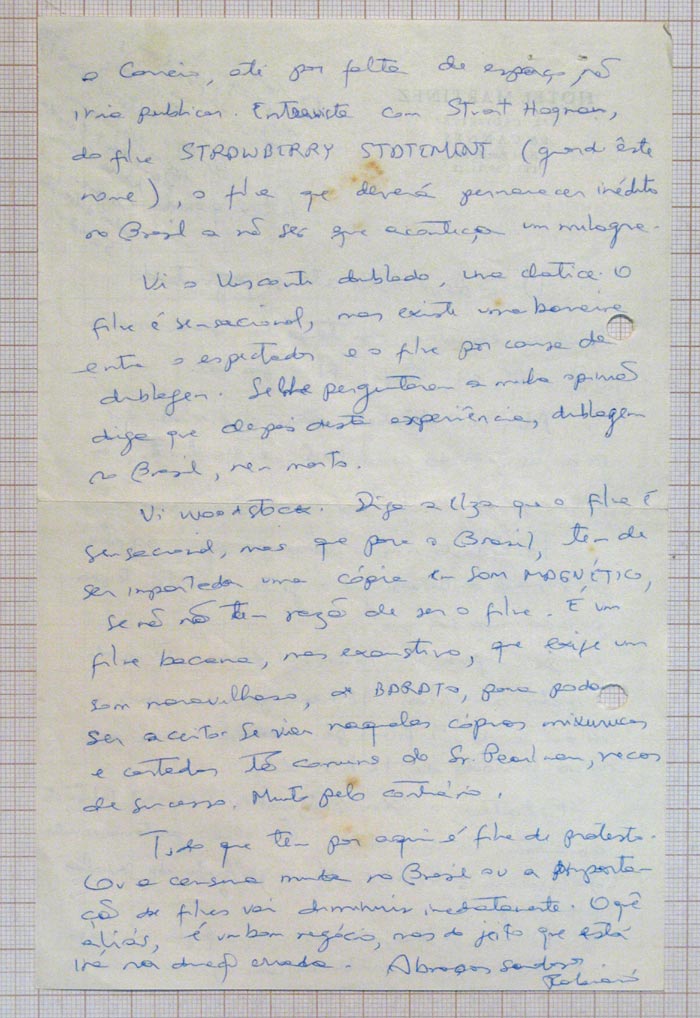 o Correio, até por falta de espaço, nõ
iria publicar. Entrevista com Stuart Hagman,
do filme STRAWBERRY STATEMENT (guard êste
nome), o filme que deverá permanecer inédito
no Brasil a nõ ser que aconteça um milagre.
Vi o Visconti dublado, uma chatice. O
filme é sensacional, mas existe uma barreira
entre o espectador e o filme por causa da
dublagem. Se lhe perguntarem a minha opiniõ
diga que depois desta experiência, dublagem
no Brasil, nem morto.
Vi WOODSTOCK. Diga a que o filme é
sensacional, mas que para o Brasil, tem de
ser importada uma cópia em SOM MAGNÉTICO,
se nõ nõ tem razõ de ser o filme. É um
filme bacana, mas exaustivo, que exige um
som maravilhoso, BARATO, para poder
ser aceito. Se vier naquelas cópias mixurucas
e cortadas tõ comuns do Sr. Pearlman, necas
de sucesso. Muito pelo contrário.
Tudo que tem por aqui é filme de protesto.
Ou a censura muda no Brasil ou a importa
çõ de filmes vai diminuir imediatamente. O quê
aliás, é um bom negócio, mas do jeito que está
irá na direçõ errada. Abraços saudosos